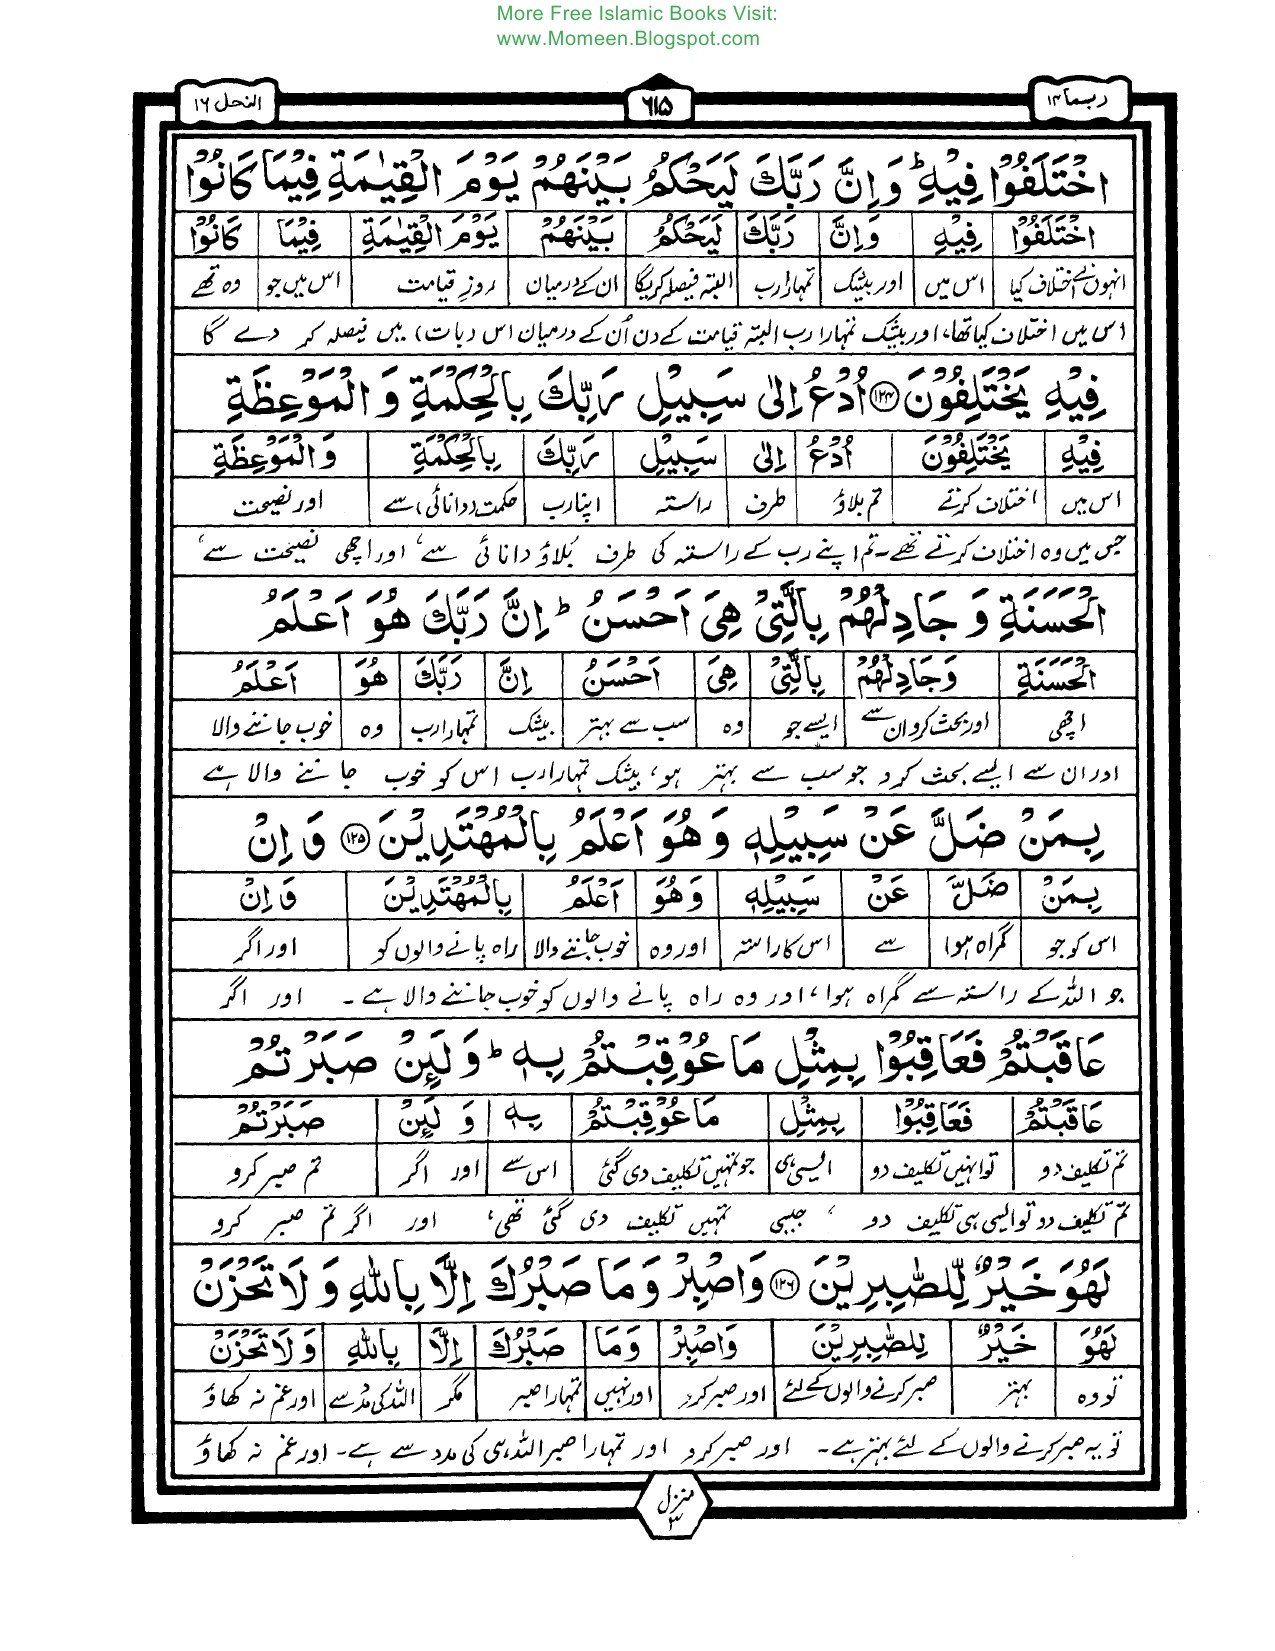 More Free Islamic Books Visit:
www.Momeen.Blogspot.com
ربما ۱۴
۶۱۵
النحل ۱۶
اخْتَلَفُوْا فِیْهِ ؕ وَاِنَّ رَبَّكَ لَیَحْكُمُ بَیْنَهُمْ یَوْمَ الْقِیٰمَةِ فِیْمَا كَانُوْا
اخْتَلَفُوْا فِیْهِ وَاِنَّ رَبَّكَ لَیَحْكُمُ بَیْنَهُمْ یَوْمَ الْقِیٰمَةِ فِیْمَا كَانُوْا
انہوں نے اختلاف کیا اس میں اور بیشک تمہارا رب البتہ فیصلہ کریگا ان کے درمیان روزِ قیامت اس میں جو وہ تھے
اس میں اختلاف کیا تھا، اور بیشک تمہارا رب البتہ قیامت کے دن اُن کے درمیان اس (بات) میں فیصلہ کر دے گا
فِیْهِ یَخْتَلِفُوْنَ ﴿۱۲۴﴾ اُدْعُ اِلٰى سَبِیْلِ رَبِّكَ بِالْحِكْمَةِ وَ الْمَوْعِظَةِ
فِیْهِ یَخْتَلِفُوْنَ اُدْعُ اِلٰى سَبِیْلِ رَبِّكَ بِالْحِكْمَةِ وَالْمَوْعِظَةِ
اس میں اختلاف کرتے تم بلاؤ طرف راستہ اپنا رب حکمت (دانائی) سے اور نصیحت
جس میں وہ اختلاف کرتے تھے۔ تم اپنے رب کے راستہ کی طرف بُلاؤ دانائی سے، اور اچھی نصیحت سے،
الْحَسَنَةِ وَ جَادِلْهُمْ بِالَّتِیْ هِیَ اَحْسَنُ ؕ اِنَّ رَبَّكَ هُوَ اَعْلَمُ
الْحَسَنَةِ وَجَادِلْهُمْ بِالَّتِیْ هِیَ اَحْسَنُ اِنَّ رَبَّكَ هُوَ اَعْلَمُ
اچھی اور بحث کرو ان سے ایسے جو وہ سب سے بہتر بیشک تمہارا رب وہ خوب جاننے والا
اور ان سے ایسے بحث کرو جو سب سے بہتر ہو، بیشک تمہارا رب اس کو خوب جاننے والا ہے
بِمَنْ ضَلَّ عَنْ سَبِیْلِهٖ وَ هُوَ اَعْلَمُ بِالْمُهْتَدِیْنَ ﴿۱۲۵﴾ وَ اِنْ
بِمَنْ ضَلَّ عَنْ سَبِیْلِهٖ وَهُوَ اَعْلَمُ بِالْمُهْتَدِیْنَ وَاِنْ
اس کو جو گمراہ ہوا سے اس کا راستہ اور وہ خوب جاننے والا راہ پانے والوں کو اور اگر
جو اللہ کے راستہ سے گمراہ ہوا، اور وہ راہ پانے والوں کو خوب جاننے والا ہے۔ اور اگر
عَاقَبْتُمْ فَعَاقِبُوْا بِمِثْلِ مَا عُوْقِبْتُمْ بِهٖ ؕ وَ لَىِٕنْ صَبَرْتُمْ
عَاقَبْتُمْ فَعَاقِبُوْا بِمِثْلِ مَا عُوْقِبْتُمْ بِهٖ وَ لَىِٕنْ صَبَرْتُمْ
تم تکلیف دو تو انہیں تکلیف دو ایسی ہی جو تمہیں تکلیف دی گئی اس سے اور اگر تم صبر کرو
تم تکلیف دو تو ایسی ہی تکلیف دو، جیسی تمہیں تکلیف دی گئی تھی، اور اگر تم صبر کرو
لَهُوَ خَیْرٌ لِّلصّٰبِرِیْنَ ﴿۱۲۶﴾ وَ اصْبِرْ وَ مَا صَبْرُكَ اِلَّا بِاللّٰهِ وَ لَا تَحْزَنْ
لَهُوَ خَیْرٌ لِلصّٰبِرِیْنَ وَاصْبِرْ وَمَا صَبْرُكَ اِلَّا بِاللّٰهِ وَ لَا تَحْزَنْ
تو وہ بہتر صبر کرنے والوں کے لئے اور صبر کرو اور نہیں تمہارا صبر مگر اللہ کی مدد سے اور غم نہ کھاؤ
تو یہ صبر کرنے والوں کے لئے بہتر ہے۔ اور صبر کرو اور تمہارا صبر اللہ ہی کی مدد سے ہے۔ اور غم نہ کھاؤ
منزل
۳